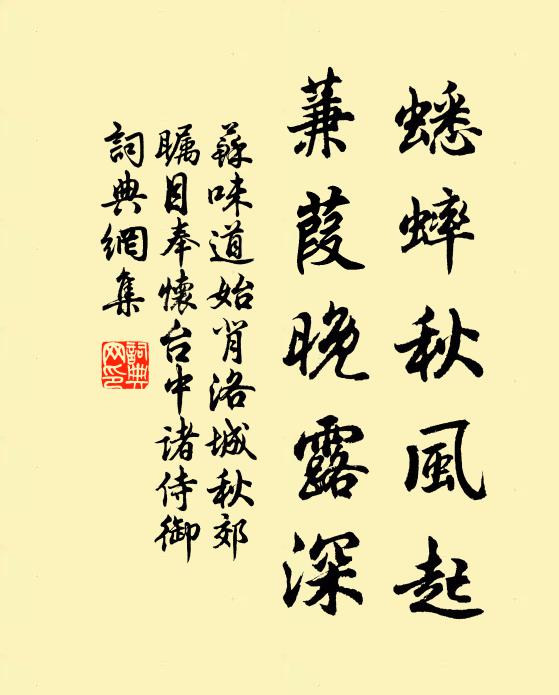 蟋蟀秋風起
蒹葭晚露深
蘇味道始背洛城秋郊
矚目奉懷台中諸侍御
詞典網集
詞典網印